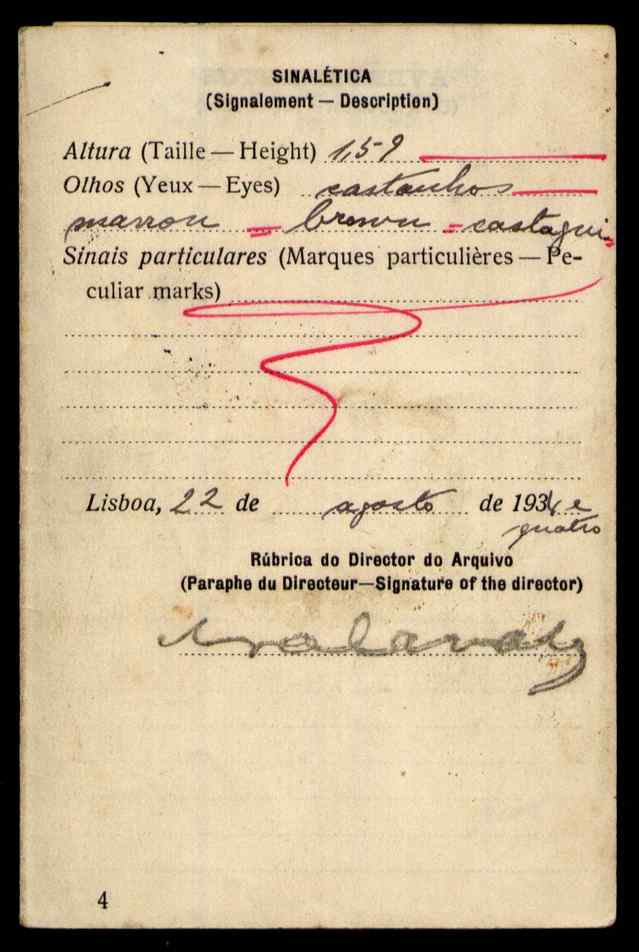 SINALÉTICA
(Signalement — Description)
Altura (Taille — Height) 1,59
Olhos (Yeux — Eyes) castanhos
marron = brown = castagni
Sinais particulares (Marques particulières — Pe-
culiar marks)
Lisboa, 22 de agosto de 1934 e
quatro
Rúbrica do Director do Arquivo
(Paraphe du Directeur—Signature of the director)
4